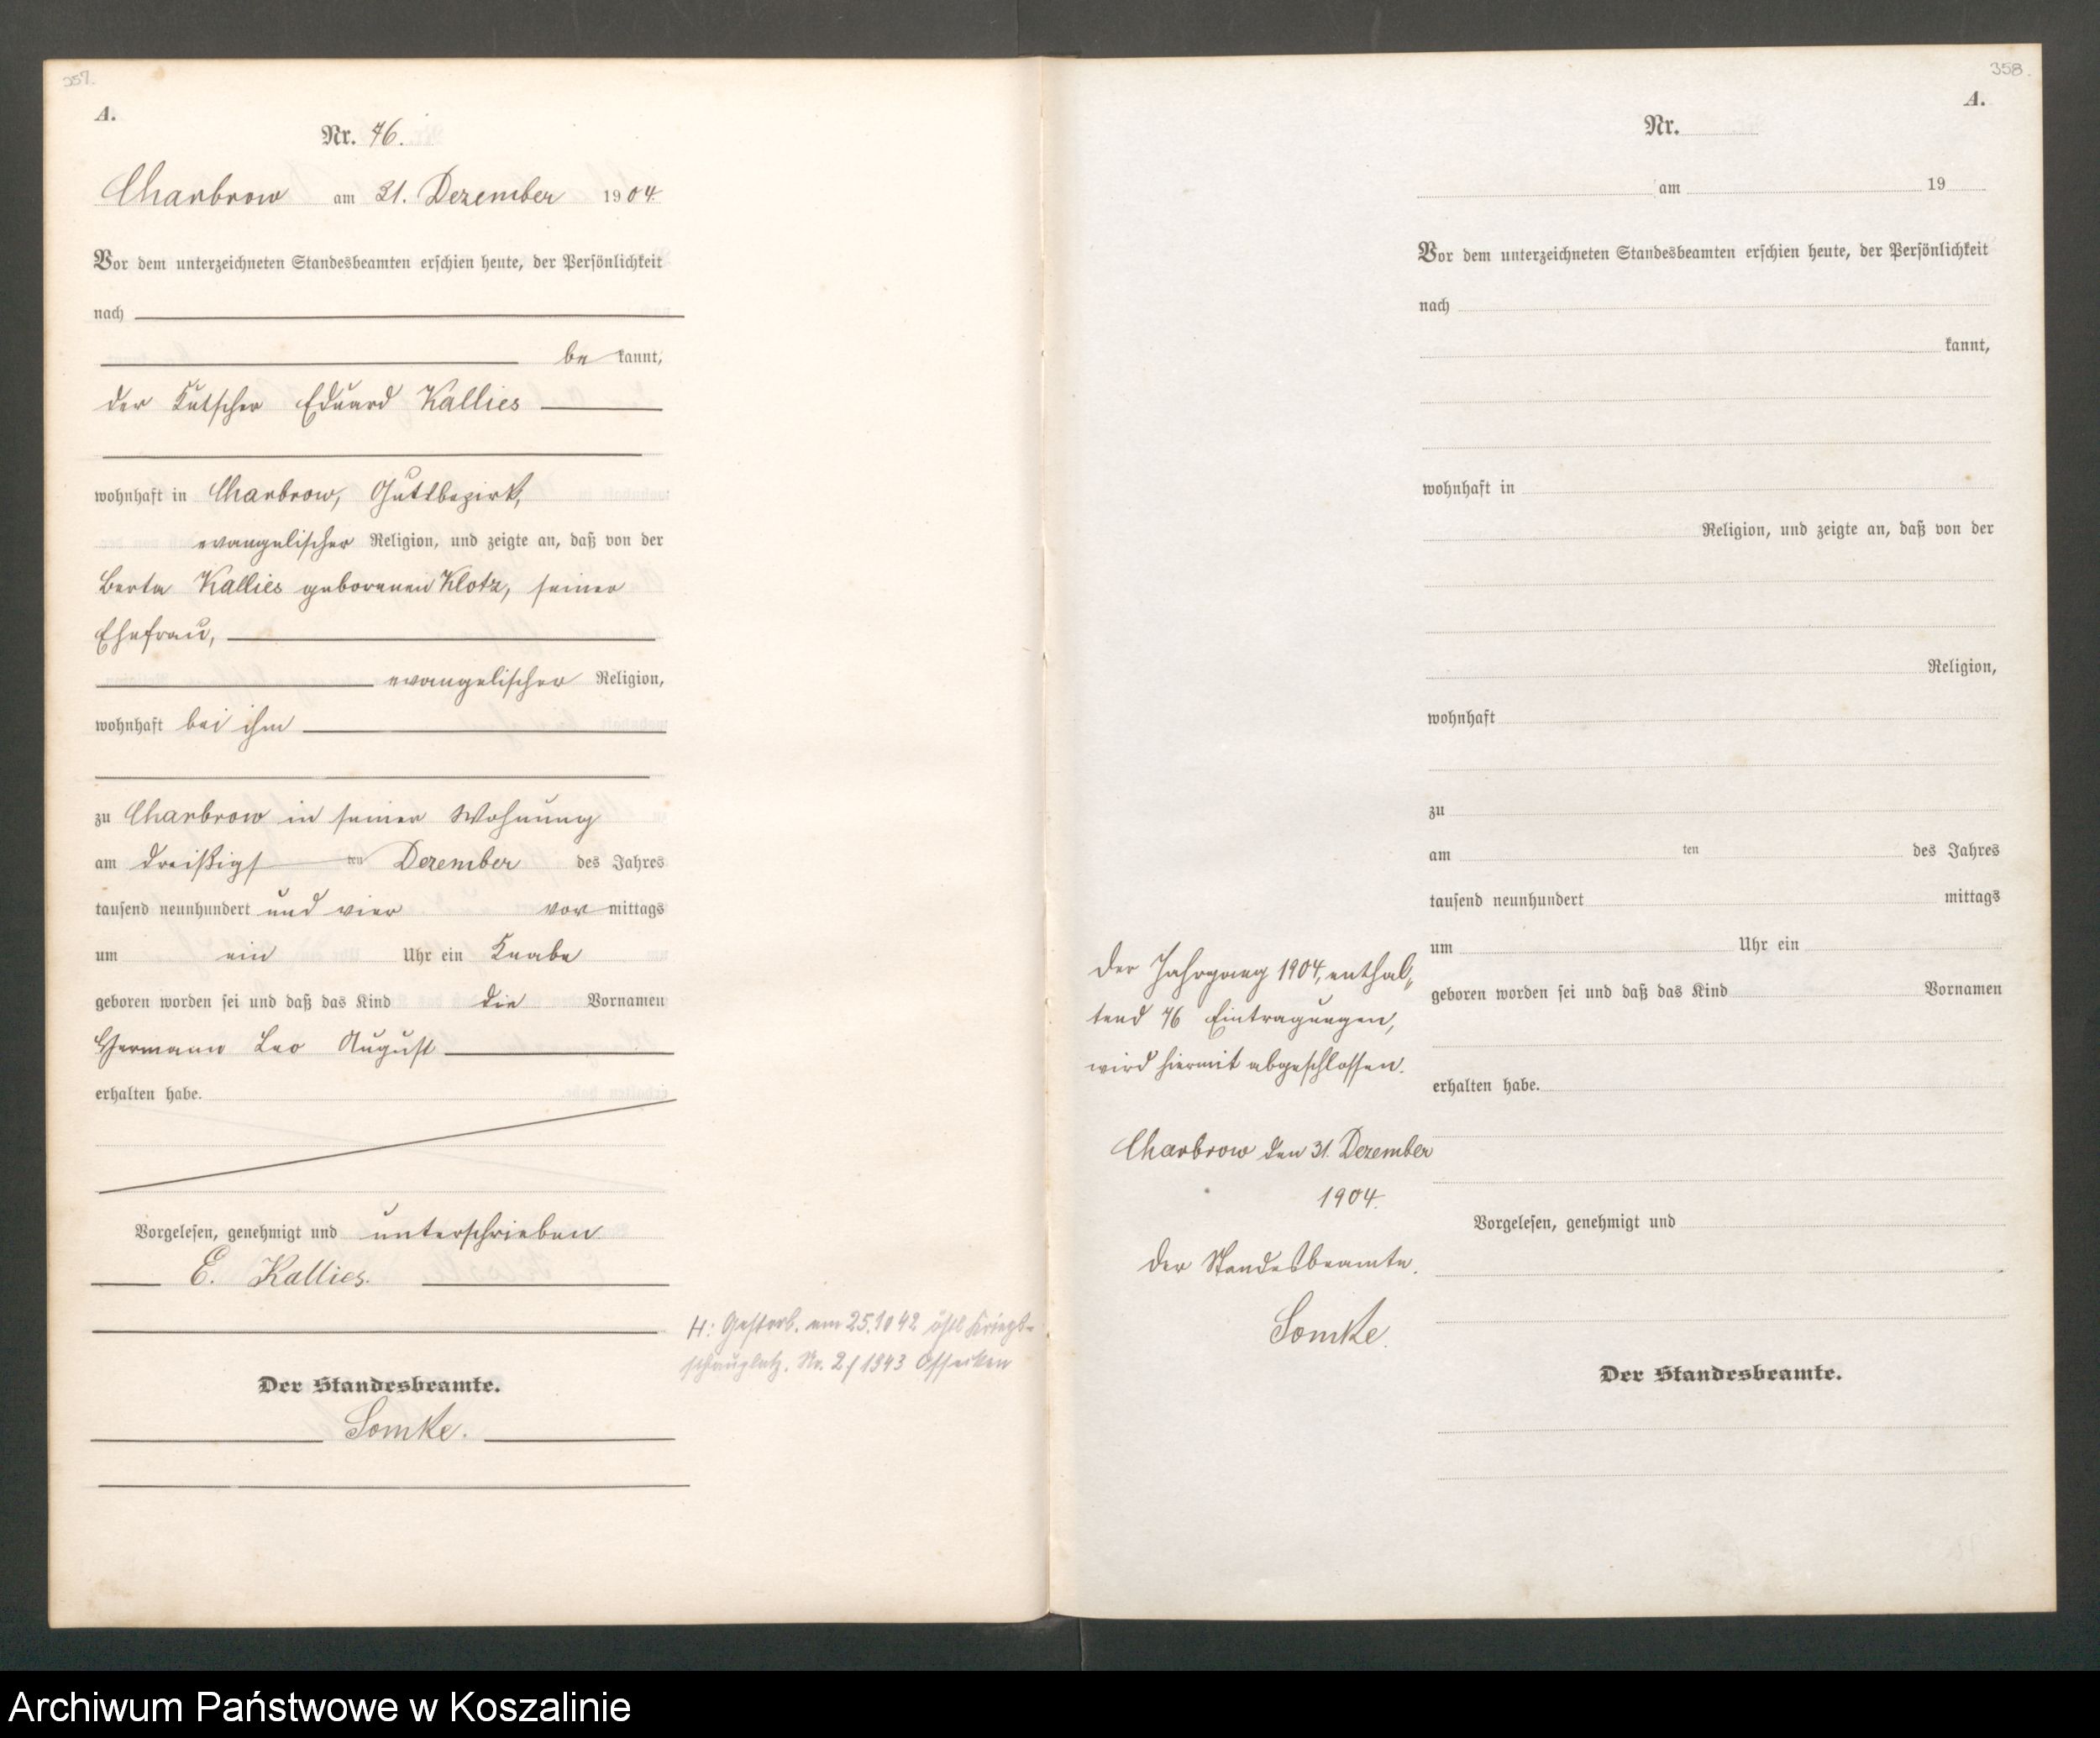 357.
A.
Nr. 76.
Charbrow am 31. Dezember 1904.
Vor dem unterzeichneten Standesbeamten erschien heute, der Persönlichkeit
nach
be kannt,
der Kutscher Eduard Kallies
wohnhaft in Charbrow, Gutsbezirk,
evangelischer Religion, und zeigte an, daß von der
Berta Kallies geborenen Klotz, seiner
Ehefrau,
evangelischer Religion,
wohnhaft bei ihm
zu Charbrow in seiner Wohnung
am dreißigsten Dezember des Jahres
tausend neunhundert und vier vor mittags
um ein Uhr ein Knabe
geboren worden sei und daß das Kind die Vornamen
Hermann Leo August
erhalten habe.
Vorgelesen, genehmigt und unterschrieben
E. Kallies.
H: Gestorb. am 25.10 42 östl Kriegs-
schauplatz. Nr. 2/1943 Ossecken
Der Standesbeamte.
Somke.
358.
A.
Nr.
am 19
Vor dem unterzeichneten Standesbeamten erschien heute, der Persönlichkeit
nach
kannt,
wohnhaft in
Religion, und zeigte an, daß von der
Religion,
wohnhaft
zu
am ten des Jahres
tausend neunhundert mittags
um Uhr ein
geboren worden sei und daß das Kind Vornamen
erhalten habe.
Vorgelesen, genehmigt und
Der Standesbeamte.
Der Jahrgang 1904, enthal„
tend 76 Eintragungen,
wird hiermit abgeschlossen.
Charbrow den 31. Dezember
1904.
Der Standesbeamte.
Somke.
Archiwum Państwowe w Koszalinie